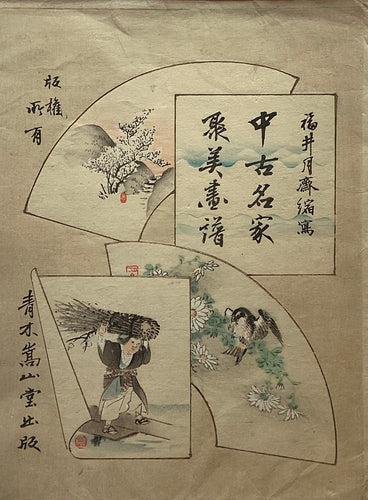 福井月齋編寫
中古名家
聚美畫譜
版權
所有
青木嵩山堂出版